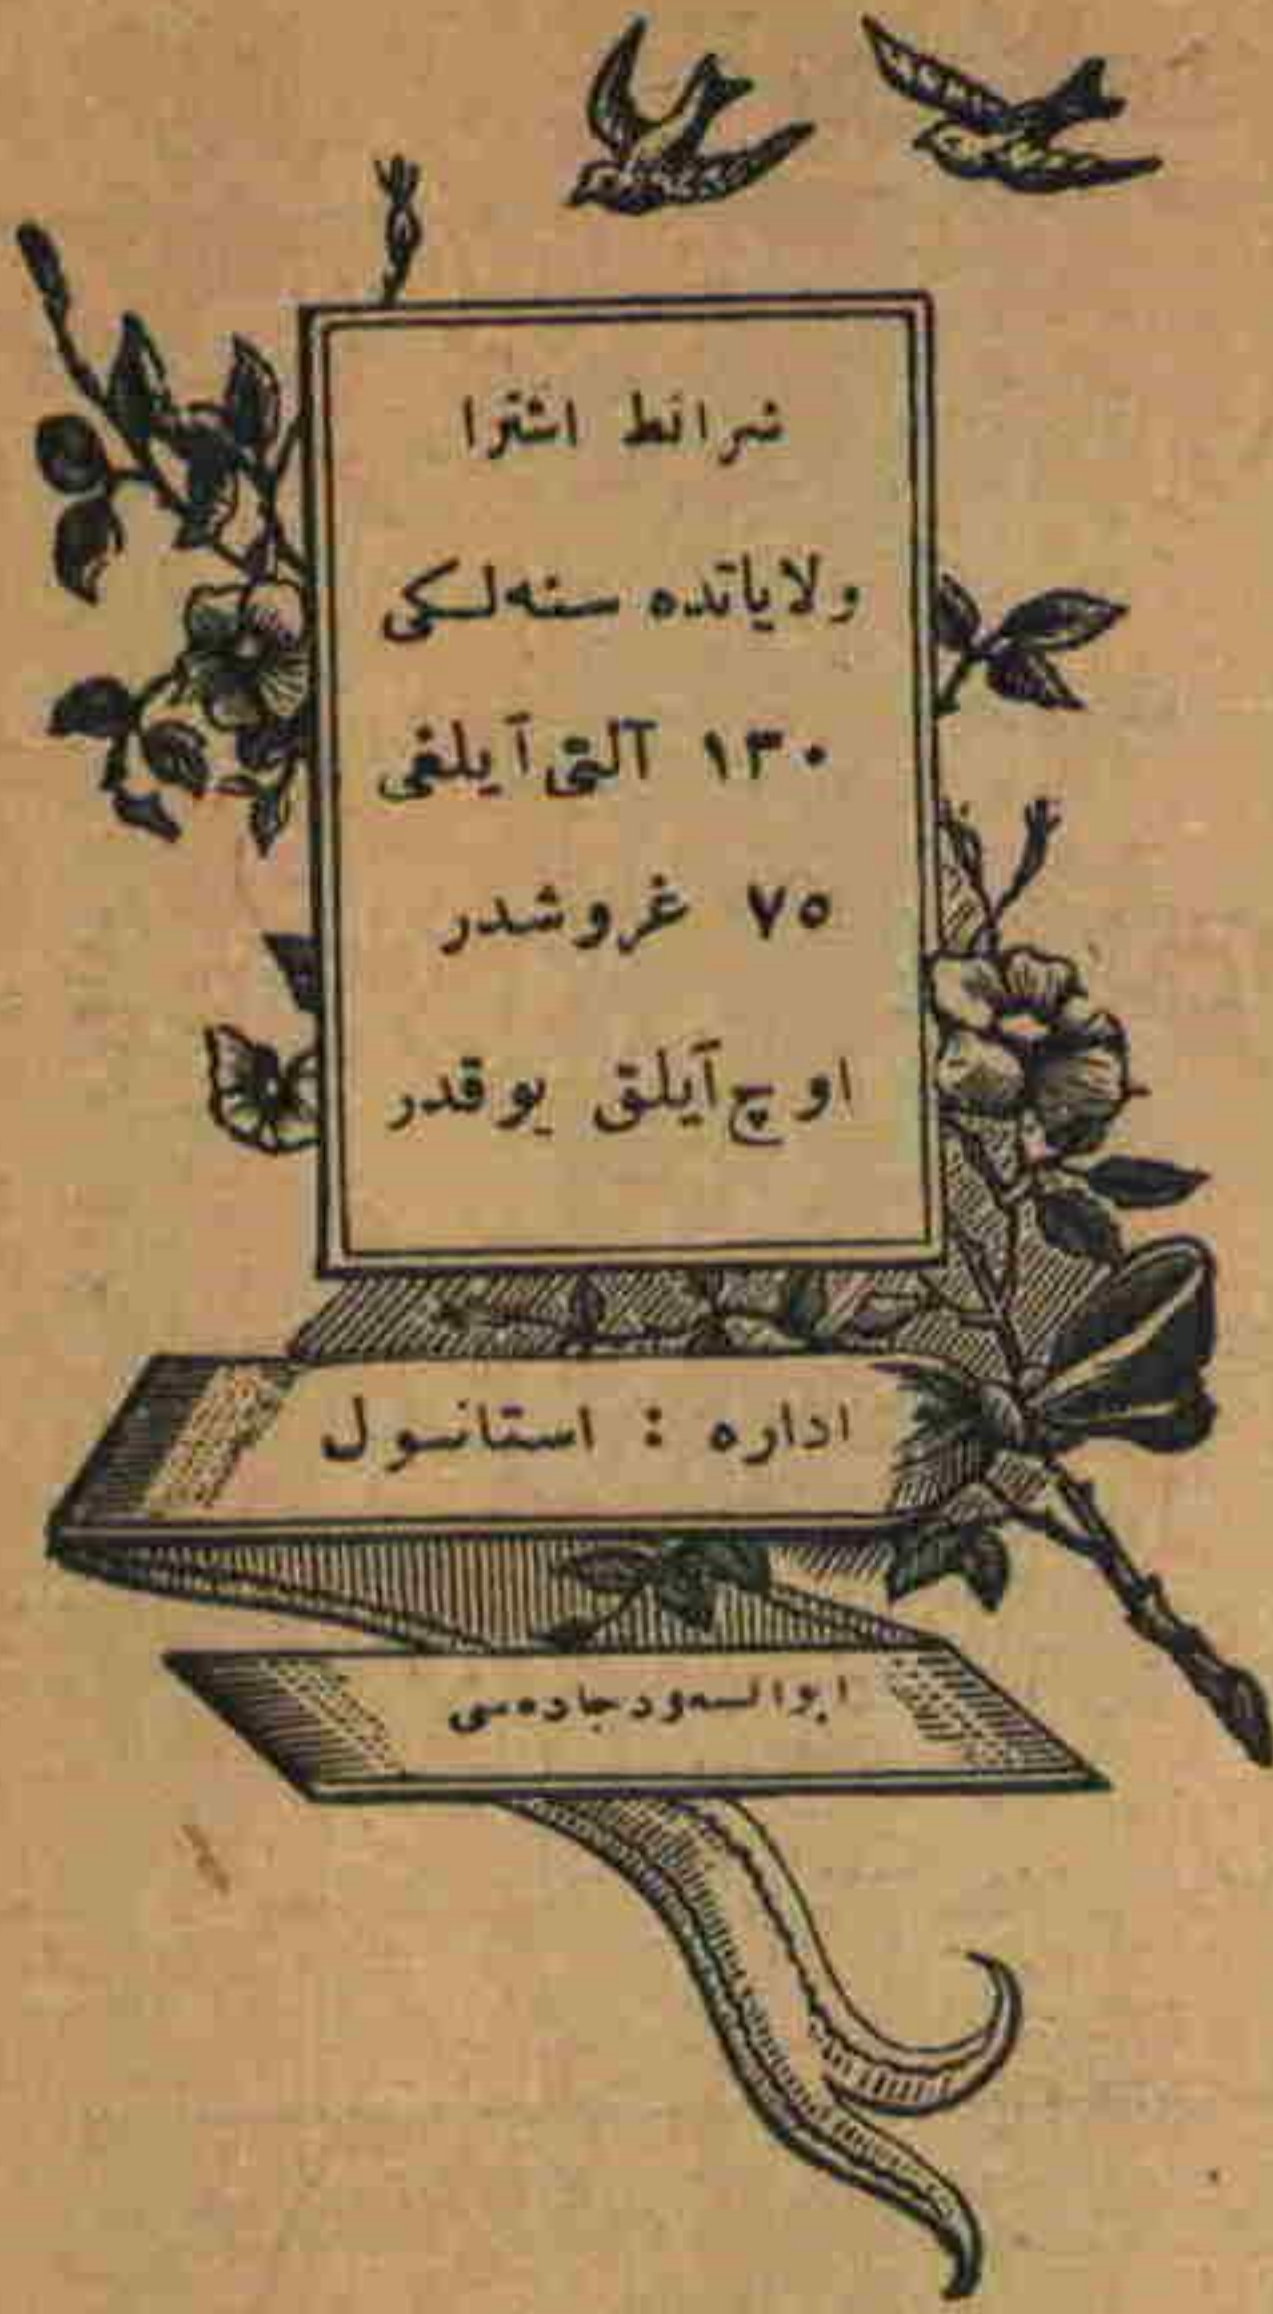 شرائط اشترا
ولایاتده سنه‌لـکی
۱۳۰ آلتی آیلغی
۷۵ غروشدر
اوچ آیلق یوقدر
اداره : استانبول
ابوالسعود جاده‌سی